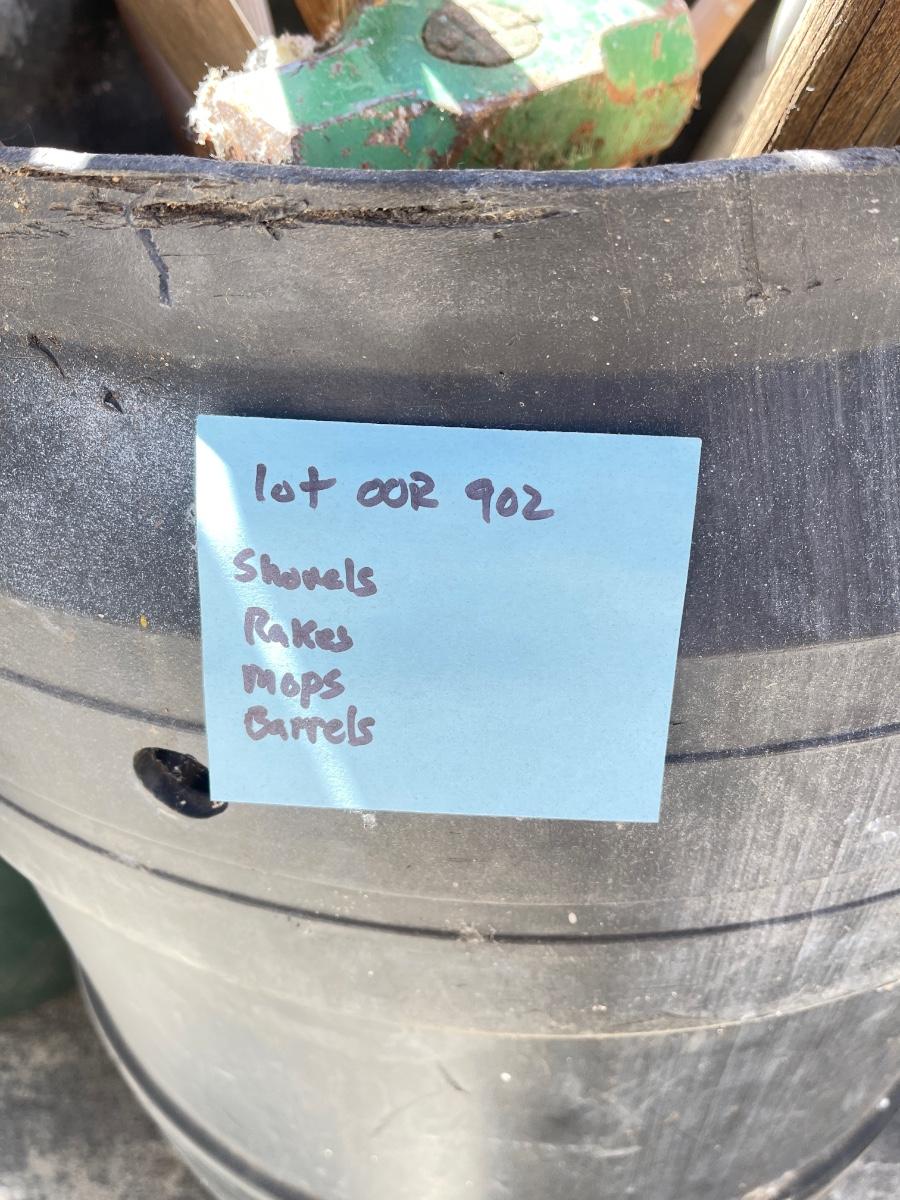 lot OOR 902
Shovels
Rakes
Mops
Barrels